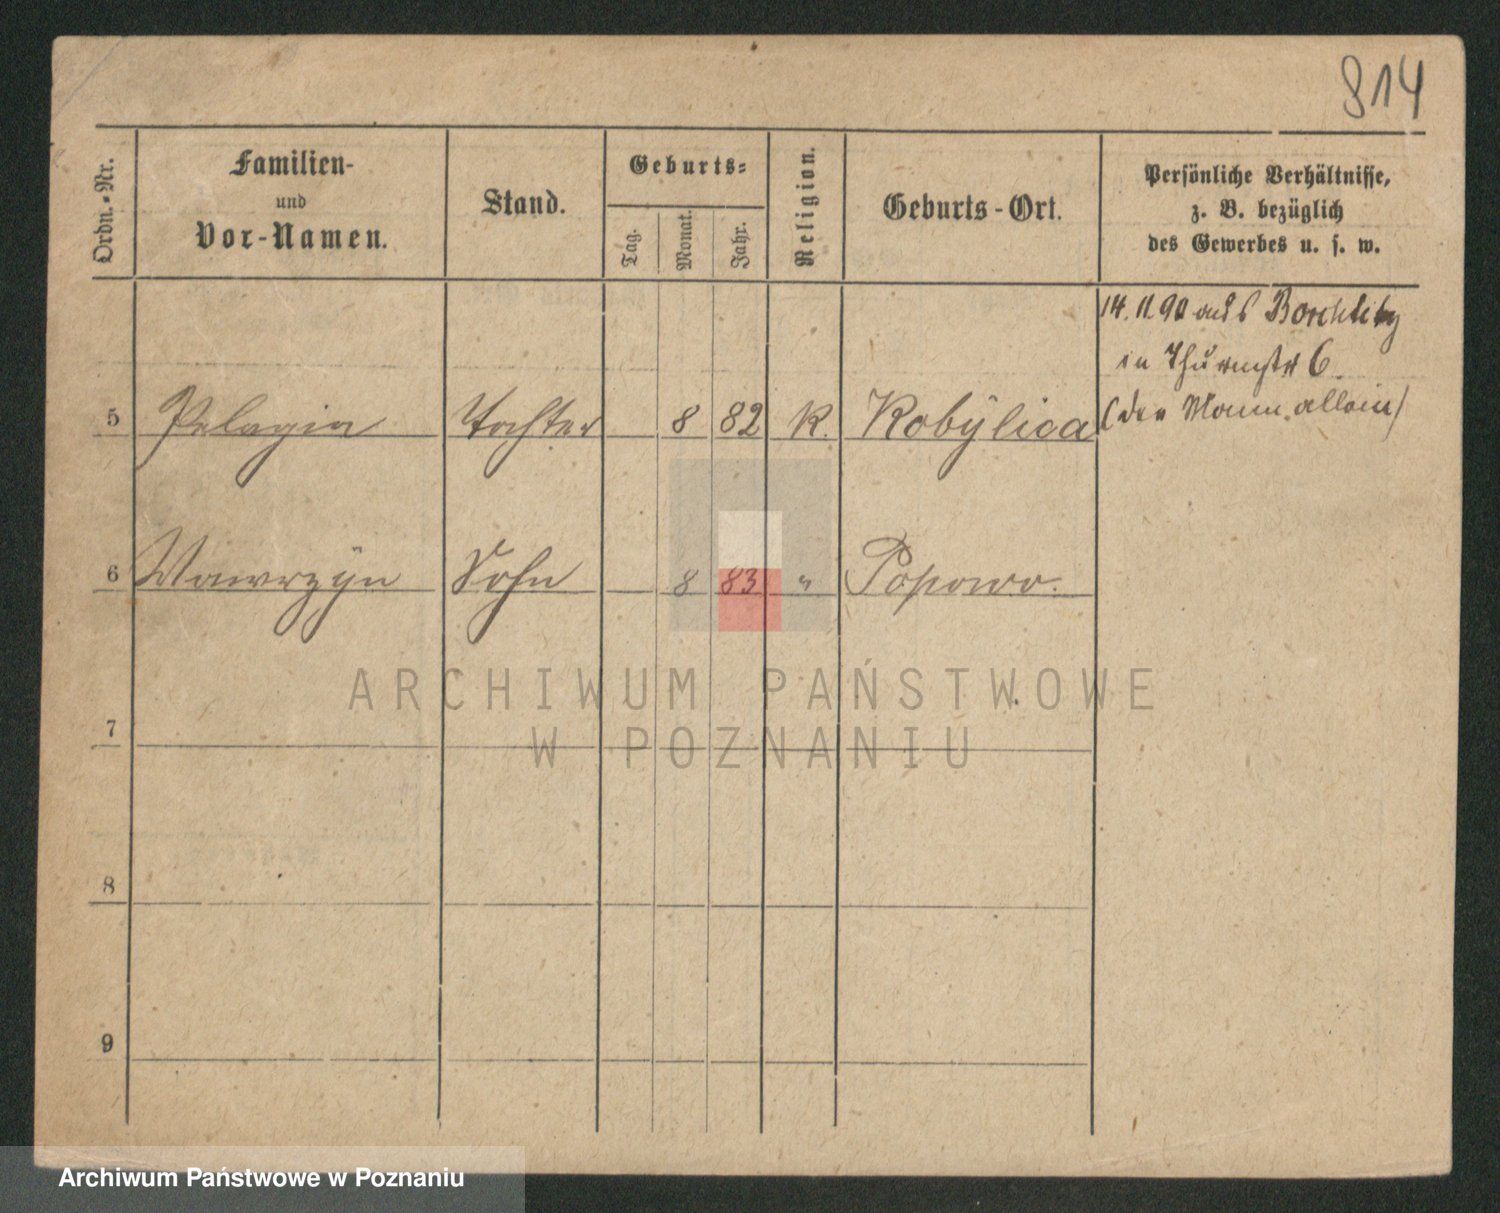 814
Ordn.-Nr.
Familien-
und
Vor-Namen.
Stand.
Geburts-
Tag.
Monat.
Jahr.
Religion.
Geburts-Ort.
Persönliche Verhältnisse,
z. B. bezüglich
des Gewerbes u. s. w.
14.11.90 aus
in Thurmstr 6.
(der Mann allein)
5 Pelagia Tochter 8 82 K. Kobylica
6 Wawrzyn Sohn 8 83 " Popowo.
7
8
9
ARCHIWUM PAŃSTWOWE
W POZNANIU
Archiwum Państwowe w Poznaniu